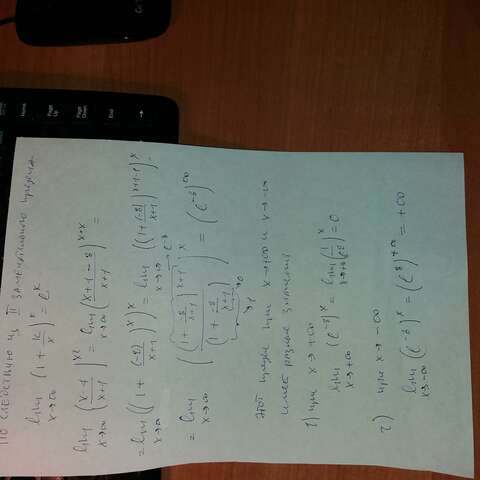 По следствию из II замечательного предела
lim x→∞ (1 + k/x)^x = e^k
lim x→∞ ((x-7)/(x+1))^x² = lim x→∞ ((x+1-8)/(x+1))^x·x =
= lim x→∞ ((1 + (-8)/(x+1))^x)^x = lim x→∞ ((1 + (-8)/(x+1))^x+1-1)^x =
= lim x→∞ ((1 + -8/(x+1))^x+1 / (1 + -8/(x+1)))^x = (e^-8)^∞
→ e^-8
→0
→1
Этот предел при x→+∞ и x→-∞
имеет разные значения
1) при x → +∞
lim x→+∞ (e^-8)^x = lim x→+∞ (1/e^8)^x = 0
2) при x → -∞
lim x→-∞ (e^-8)^x = (e^8)^+∞ = +∞
Home
Page Up
Page Down
End